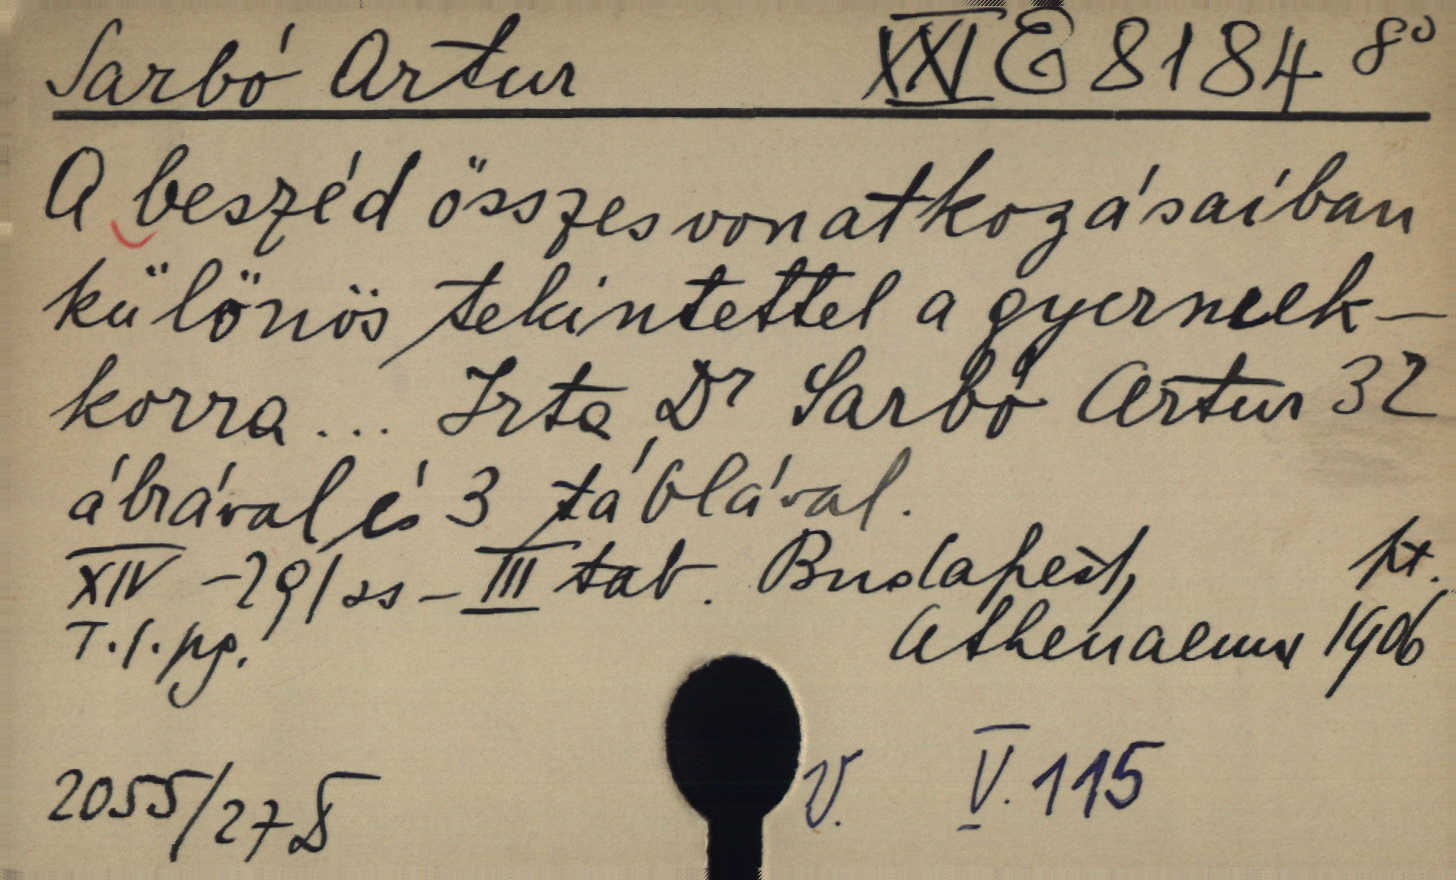 Sarbó Artur XXI E 8184 8º
A beszéd összes vonatkozásaiban
különös tekintettel a gyermek-
korra ... Irta Dr Sarbó Artur 32
ábrával és 3 táblával.
XIV - 291 ss - III tab. Budapest, kt.
T.1.pg. Athenaeum 1906
2055/27
V. V. 115